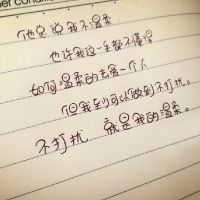 er condition
他总说我不温柔
也许我这一生都不懂得
如何温柔的去爱一个人
但我至少可以做到不打扰。
不打扰 就是我的温柔。